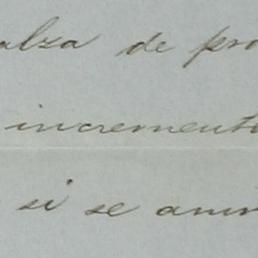 alza de pro
incremento
si se anim